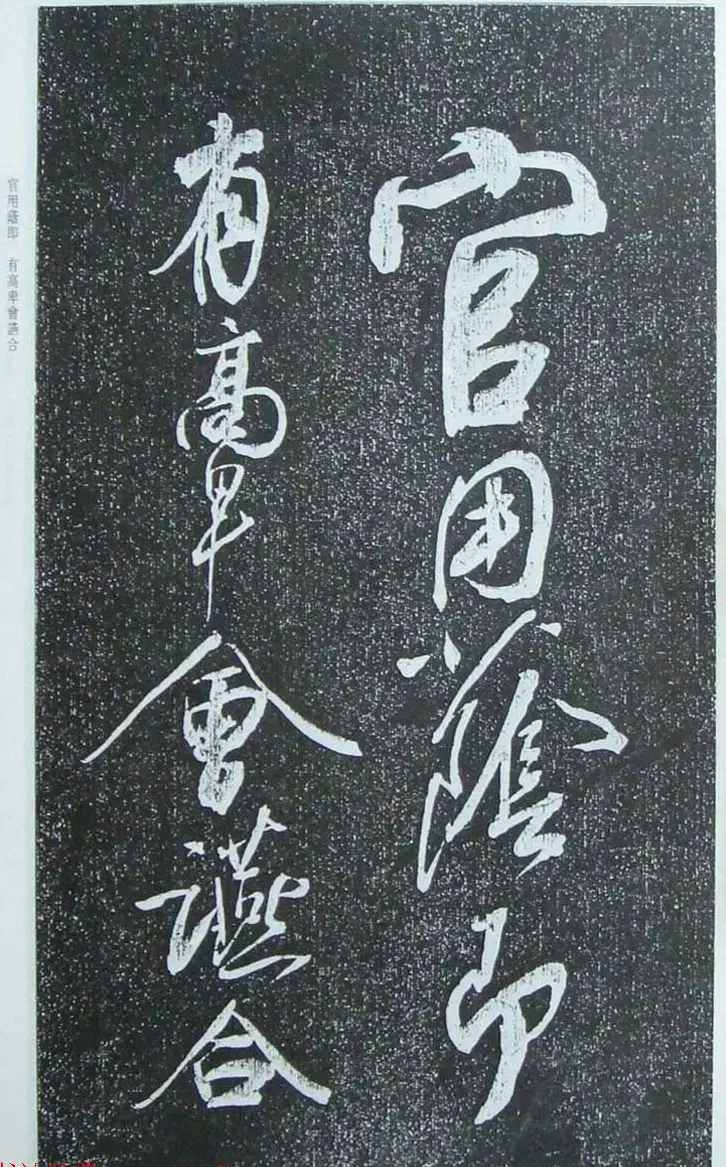 官用蔭即
有高卑會讌合
官用蔭即 有高卑會讌合